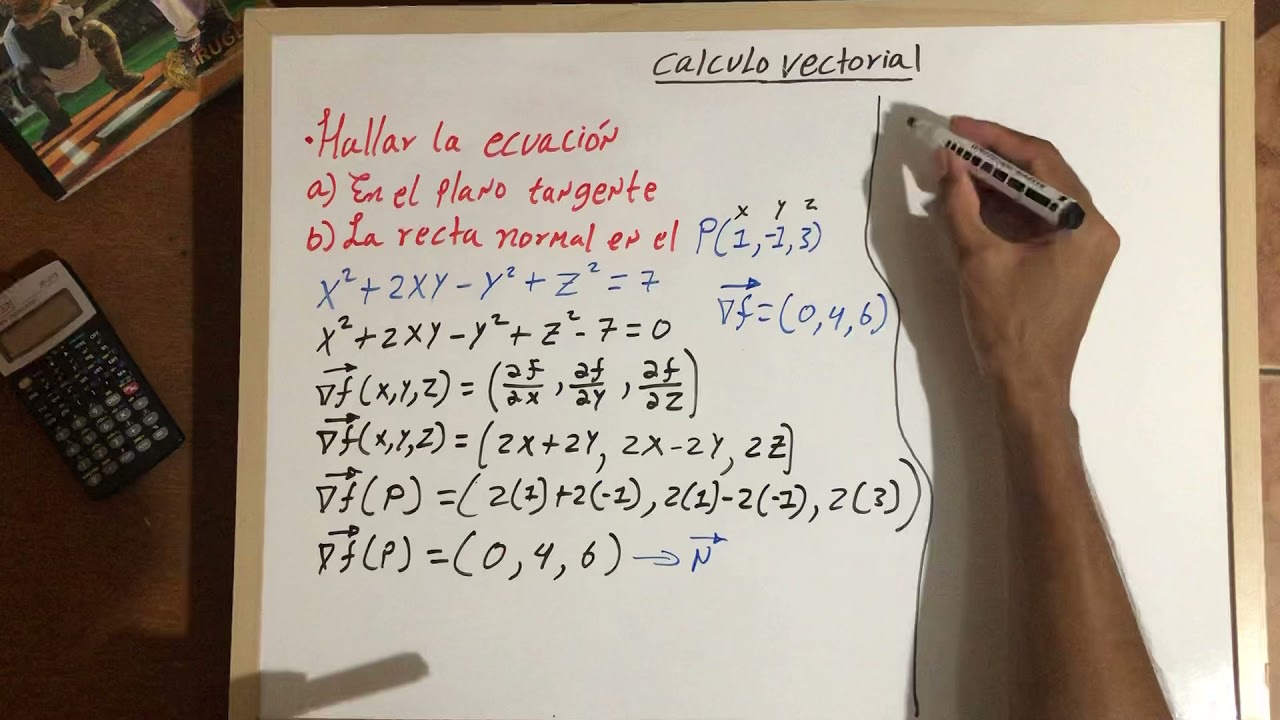 Calculo vectorial
• Hallar la ecuación
a) En el plano tangente
b) La recta normal en el P(1,-1,3)
x y z
x² + 2xy - y² + z² = 7
∇f = (0,4,6)
x² + 2xy - y² + z² - 7 = 0
∇f(x,y,z) = (∂f/∂x, ∂f/∂y, ∂f/∂z)
∇f(x,y,z) = (2x+2y, 2x-2y, 2z)
∇f(P) = (2(1)+2(-1), 2(1)-2(-1), 2(3))
∇f(P) = (0, 4, 6) → N